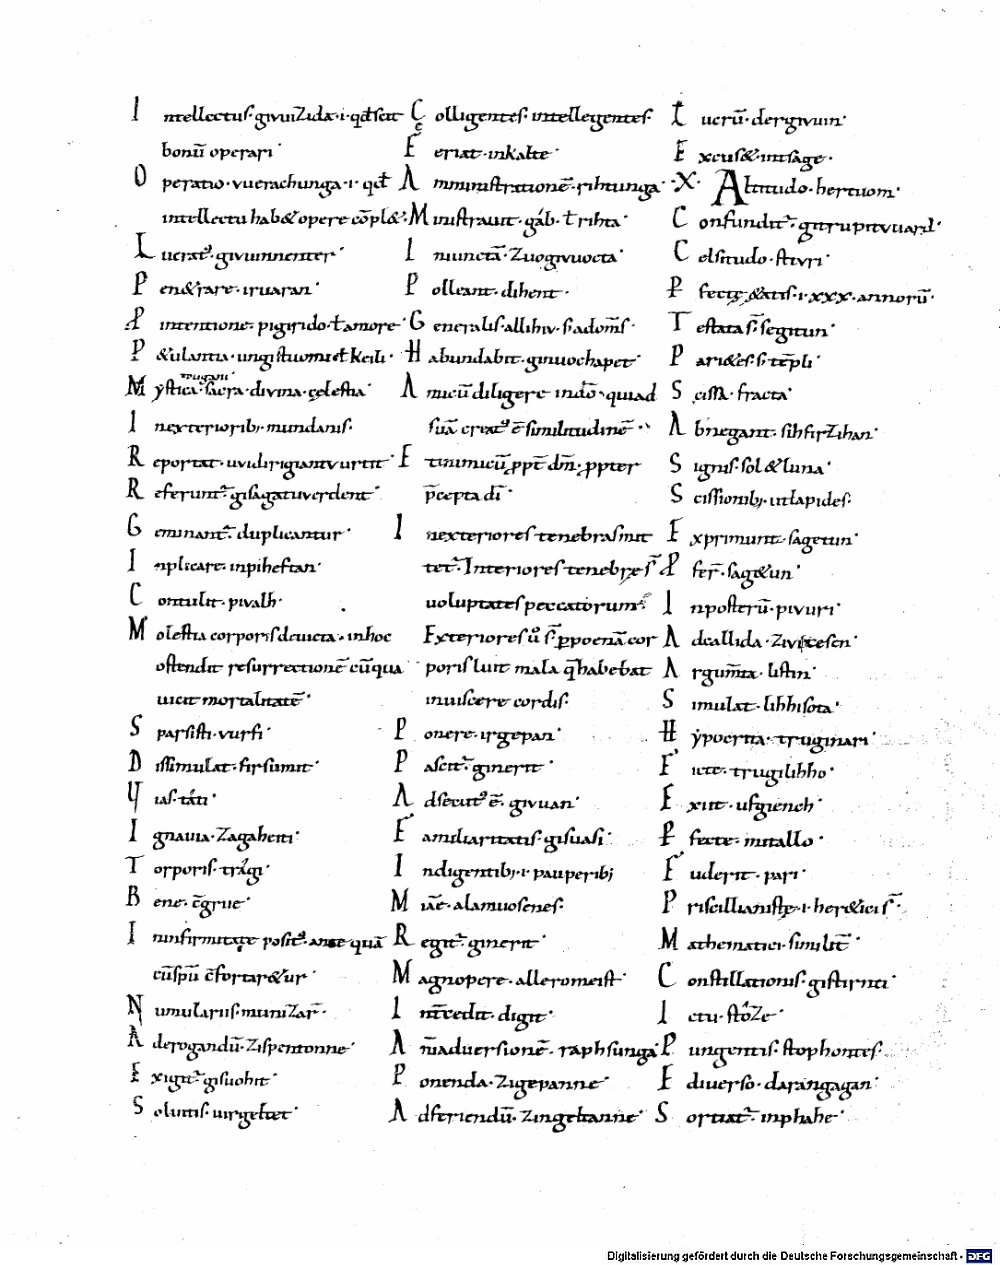 Intellectus· givuizida·i·qđ scit
bonū operari·
Operatio·vuerachunga·i·qđ
intellectu hab& opere cōpl&·
Lucrat᷒· givuinnenter·
Pen&rare·iruaran·
P intentione· pigirido·ł amore·
P &ulantia·ungistuomiet keili·
trugani
Mẏstica·sacra·divina·cęlestia·
In exteriorib;·mundanis·
Reportat·uvidirigiantvurtit·
Referunt᷒·gisagatuverdent·
Geminant᷒·duplicantur·
Inplicare·inpiheftan·
Contulit·pivalh·
Molestia corporis deuicta·inhoc
ostendit resurrectionē cū qua
uicit mortalitatē·
Sparsisti·vurfi·
Dissimulat·firsumit·
Vias·táti·
Ignavia·zagaheiti·
Torporis·trági·
Bene·c̄grue·
In infirmitate posit᷒·ante quā
cū spū c̄fortar&ur·
Numulariis·munizar̄·
Aderogandū·zispentonne·
Exigit᷒·gisuohit·
Solutis·
Colligentes·intellegentes·
Feriat·inkalte·
Amministrationē·rihtunga·
Ministravit·gáb·ł rihta·
Iniunctā·zuogivuocta·
Polleant·dihent·
Generalis·allihiv·
Habundabit·ginuochapet·
Amicū diligere·quiad
suā creat᷒ ē similitudinē·
Et inimicū ppt̄ dm̄·ppter
p̄cepta di·
In exteriores tenebras mit
tet᷒·Interiores tenebrę s̄
uoluptates peccatorum·
Exteriores ů s̄ p poenā cor
poris luit mala q̄ habebat
inuiscere cordis·
Ponere·irgepan·
Pascit᷒·ginerit·
Adsecut᷒ ē·givuan·
Familiaritatis·gisuasi·
Indigentib;·i·pauperib;
Miāe·alamuosenes·
Regit᷒·ginerit·
Magnopere·alleromeist·
Int̄cedit·digit·
Am̄aduersionē·raphsunga·
Ponenda·zigepanne·
Adferiendū·
Lucrū·dergivuin·
Excus&·intsage·
·X· Altitudo·hertuom·
Confundit᷒·
Celsitudo·stivri·
P fecte ętatis·i·xxx·annorū·
Testata s̄·segitun·
Pari&es·s·tēpli·
Scissa·fracta·
Abnegant·sihfirzihan·
Signis·sol & luna·
Scissionib;·intlapides·
Exprimunt·sagetun·
P fer̄·sag&un·
In posterū·pivuri·
Adcallida·
Argum̄ta·listin·
Simulat·lihhisota·
Hẏpocrita·truginari·
Ficte·trugilihho·
Exiit·usgiench·
P fecte·mitallo·
Fuderit·pari·
Priscillianistę·i·her&ici s̄·
Mathematici·similit̄·
Constillationis·gistirnti·
Ictu·stóze·
Pungentis·stophontes·
Ediverso·darangagan·
Sortiat᷒·inphahe·
Digitalisierung gefördert durch die Deutsche Forschungsgemeinschaft - DFG